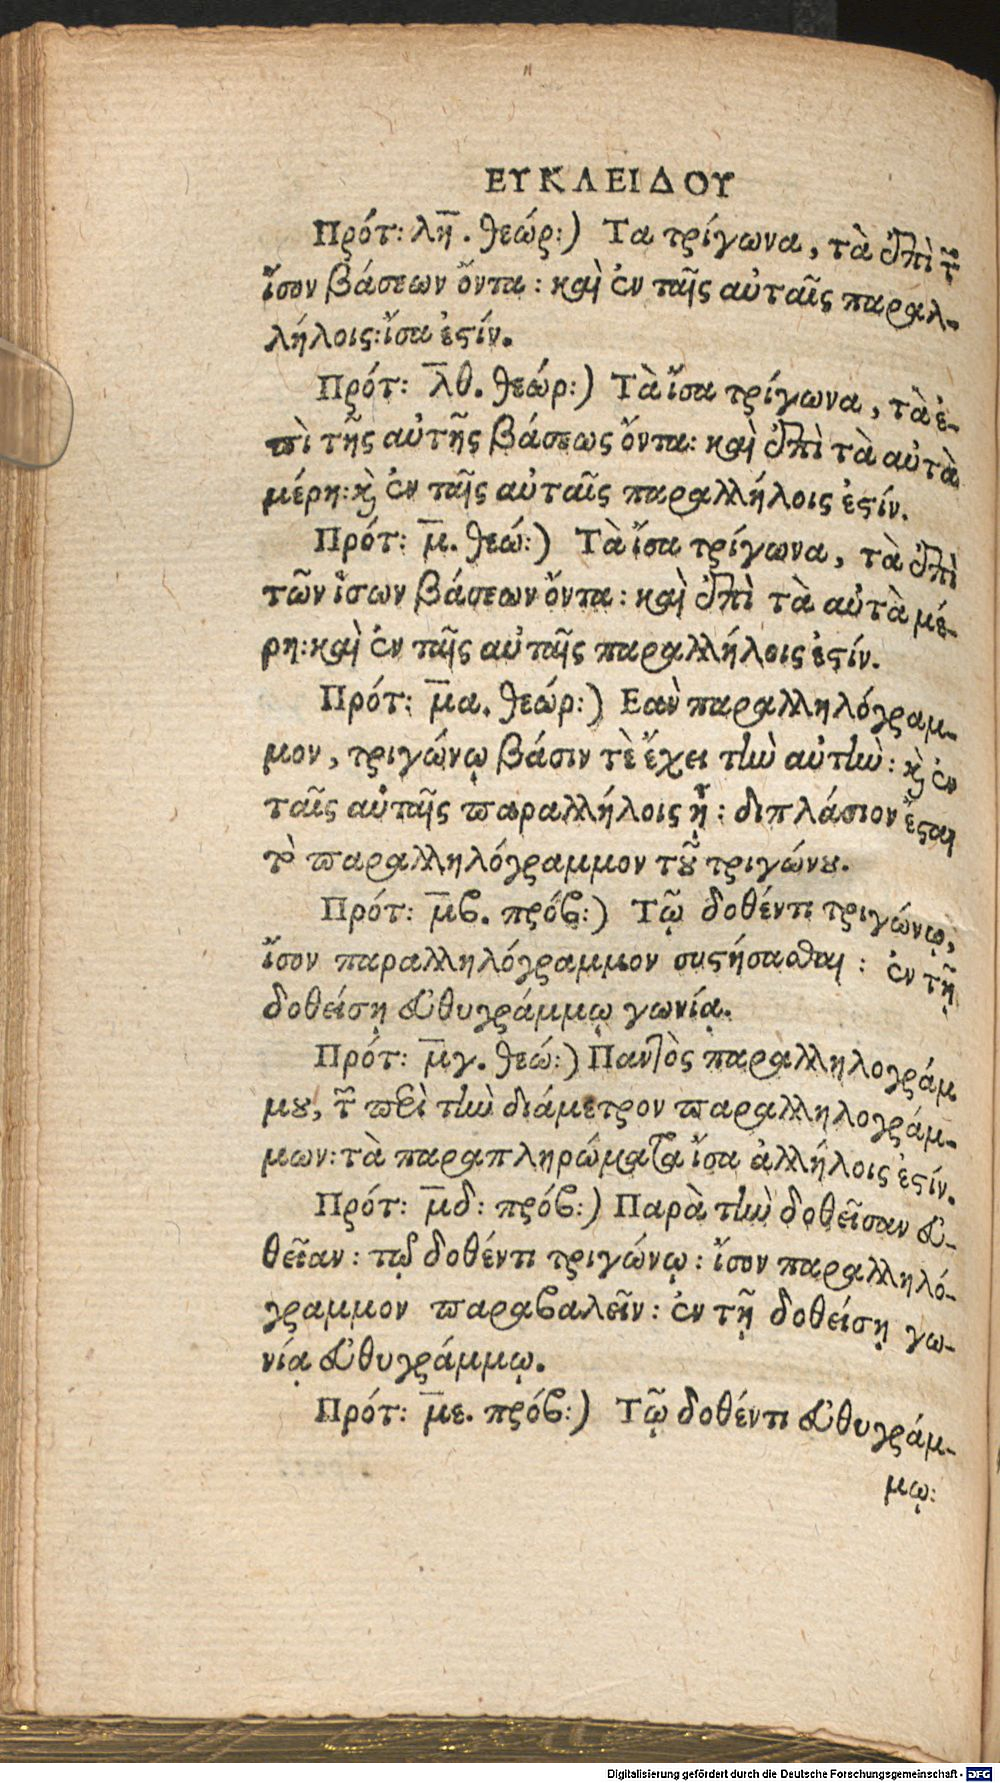 ΕΥΚΛΕΙΔΟΥ
Πρότ: λη̄. θεώρ:) Τα τρίγωνα, τὰ ἐπὶ τ̃
ἴσον βάσεων ὄντα: καὶ ἐν ταῖς αὐταῖς παραλ-
λήλοις: ἴσα ἐϛίν.
Πρότ: λ̄θ. θεώρ:) Τὰ ἴσα τρίγωνα, τὰ ἐ-
πὶ τῆς αὐτῆς βάσεως ὄντα: καὶ ἐπὶ τὰ αὐτὰ
μέρη: κ̀ ἐν ταῖς αὐταῖς παραλλήλοις ἐϛίν.
Πρότ: μ̄. θεώ:) Τὰ ἴσα τρίγωνα, τὰ ἐπὶ
τῶν ἴσων βάσεων ὄντα: καὶ ἐπὶ τὰ αὐτὰ μέ-
ρη: καὶ ἐν ταῖς αὐταῖς παραλλήλοις ἐϛίν.
Πρότ: μ̄α. θεώρ:) Εαὰν παραλληλόγραμ-
μον, τριγώνῳ βάσιν τὲ ἔχει τὴν αὐτὴν: κ̀ ἐν
ταῖς αὐταῖς παραλλήλοις ᾖ: διπλάσιον ἔϛαι
τὸ παραλληλόγραμμον τοῦ τριγώνου.
Πρότ: μ̄ϐ. πρόϐ:) Τῷ δοθέντι τριγώνῳ,
ἴσον παραλληλόγραμμον συϛήσασθαι: ἐν τῇ
δοθείσῃ εὐθυγράμμῳ γωνίᾳ.
Πρότ: μ̄γ. θεώ:) Παντὸς παραλληλογράμ
μου, τ̃ περὶ τὴν διάμετρον παραλληλογράμ-
μων: τὰ παραπληρώματα ἴσα ἀλλήλοις ἐϛίν.
Πρότ: μ̄δ: πρόϐ:) Παρὰ τὴν δοθεῖσαν εὐ-
θεῖαν: τῷ δοθέντι τριγώνῳ: ἴσον παραλληλό-
γραμμον παραϐαλεῖν: ἐν τῇ δοθείσῃ γω-
νίᾳ εὐθυγράμμῳ.
Πρότ: μ̄ε. πρόϐ:) Τῷ δοθέντι εὐθυγράμ-
μῳ:
Digitalisierung gefördert durch die Deutsche Forschungsgemeinschaft - DFG